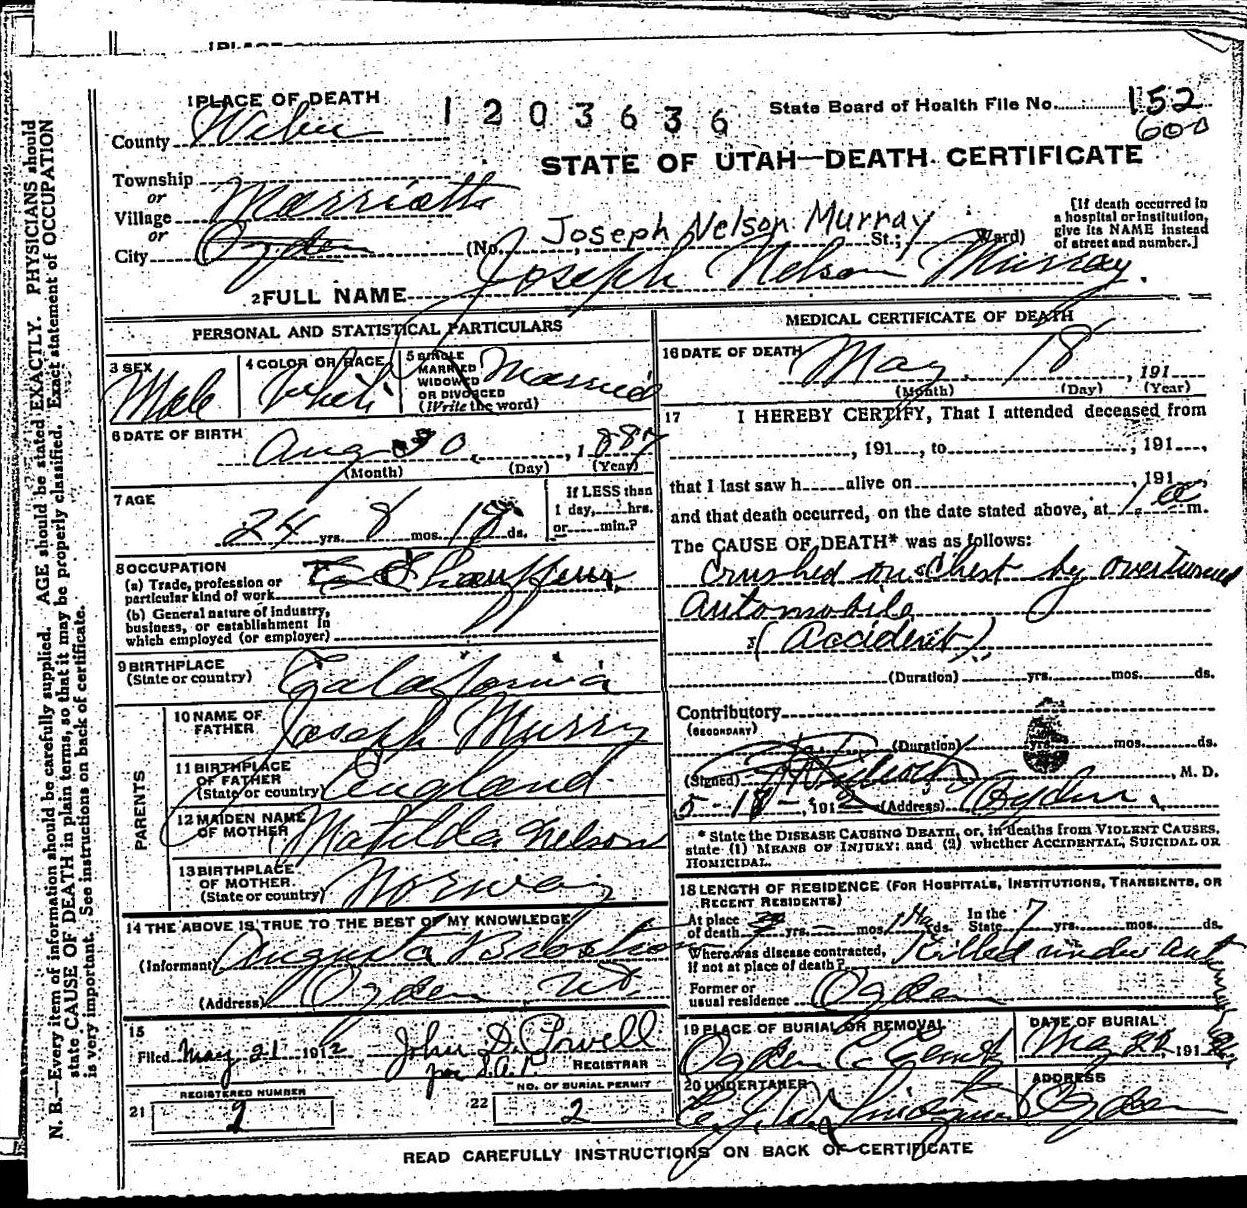 1 PLACE OF DEATH
1203636
State Board of Health File No. 152
600
County Weber
STATE OF UTAH—DEATH CERTIFICATE
Township
or
Village Marriotts
or
City Ogden
(No. St.; Ward)
Joseph Nelson Murray
[If death occurred in
a hospital or institution,
give its NAME instead
of street and number.]
2 FULL NAME Joseph Nelson Murray.
PERSONAL AND STATISTICAL PARTICULARS
3 SEX
Male
4 COLOR OR RACE
White
5 SINGLE
MARRIED
WIDOWED
OR DIVORCED
(Write the word)
Married
6 DATE OF BIRTH
Aug 30, 1887
(Month) (Day) (Year)
7 AGE
24 yrs. 8 mos. 18 ds.
If LESS than
1 day, hrs.
or min.?
8 OCCUPATION
(a) Trade, profession or
particular kind of work Chauffeur
(b) General nature of industry,
business, or establishment in
which employed (or employer)
9 BIRTHPLACE
(State or country) California
PARENTS
10 NAME OF
FATHER Joseph Murry
11 BIRTHPLACE
OF FATHER
(State or country) England
12 MAIDEN NAME
OF MOTHER Matilda Nelson
13 BIRTHPLACE
OF MOTHER
(State or country) Norway
14 THE ABOVE IS TRUE TO THE BEST OF MY KNOWLEDGE
(Informant) Augusta
(Address) Ogden Ut.
15
Filed May 21 1912 John D. Powell
REGISTRAR
REGISTERED NUMBER
21 2
NO. OF BURIAL PERMIT
22 2
MEDICAL CERTIFICATE OF DEATH
16 DATE OF DEATH May 18, 191
(Month) (Day) (Year)
17 I HEREBY CERTIFY, That I attended deceased from
, 191 , to , 191 ,
that I last saw h alive on , 191
and that death occurred, on the date stated above, at 1 a m.
The CAUSE OF DEATH* was as follows:
Crushed on Chest by overturned
Automobile
(Accident)
(Duration) yrs. mos. ds.
Contributory
(SECONDARY)
(Duration) yrs. mos. ds.
(Signed) , M. D.
5-18-, 1912 (Address) Ogden.
* State the DISEASE CAUSING DEATH, or, in deaths from VIOLENT CAUSES,
state (1) MEANS OF INJURY; and (2) whether ACCIDENTAL, SUICIDAL OR
HOMICIDAL.
18 LENGTH OF RESIDENCE (FOR HOSPITALS, INSTITUTIONS, TRANSIENTS, OR
RECENT RESIDENTS)
At place
of death yrs. mos. ds.
In the
State 7 yrs. mos. ds.
Where was disease contracted,
if not at place of death? Killed under Auto
Former or
usual residence Ogden
19 PLACE OF BURIAL OR REMOVAL
Ogden C.
DATE OF BURIAL
May 191
20 UNDERTAKER
ADDRESS
Ogden
READ CAREFULLY INSTRUCTIONS ON BACK OF CERTIFICATE
N. B.—Every item of information should be carefully supplied. AGE should be stated EXACTLY. PHYSICIANS should
state CAUSE OF DEATH in plain terms, so that it may be properly classified. Exact statement of OCCUPATION
is very important. See instructions on back of certificate.